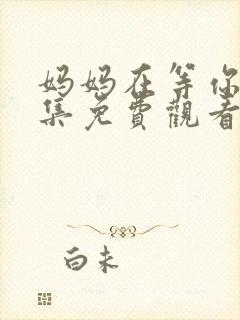 妈妈在等你
集免費觀看
白未